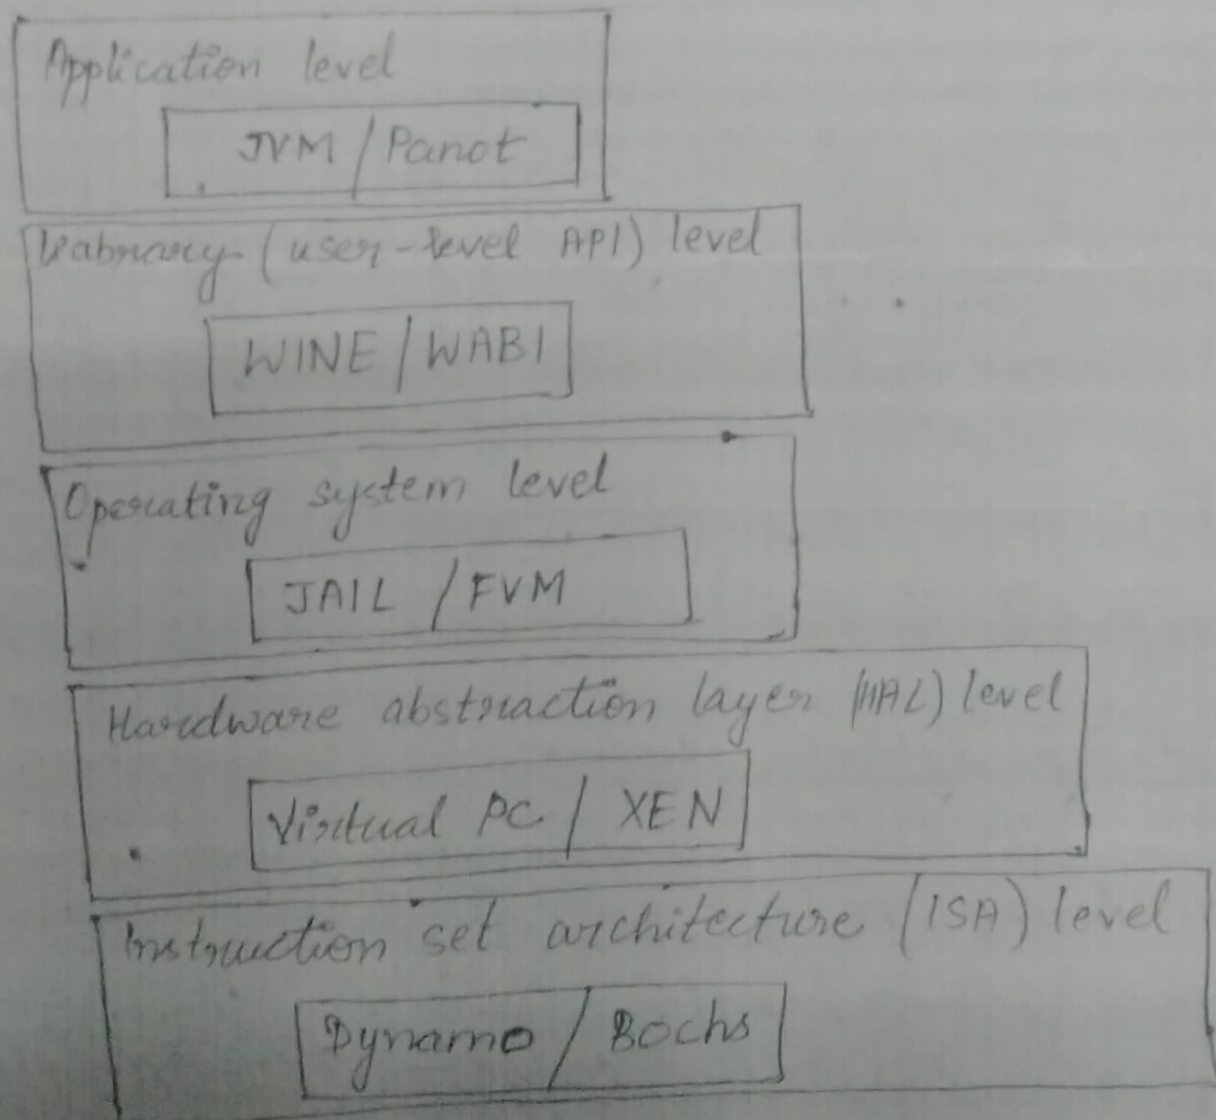 Application level
JVM / Panot
(user-level API) level
WINE / WABI
Operating system level
JAIL / FVM
Hardware abstraction layer (HAL) level
Virtual PC / XEN
Instruction set architecture (ISA) level
Dynamo / Bochs